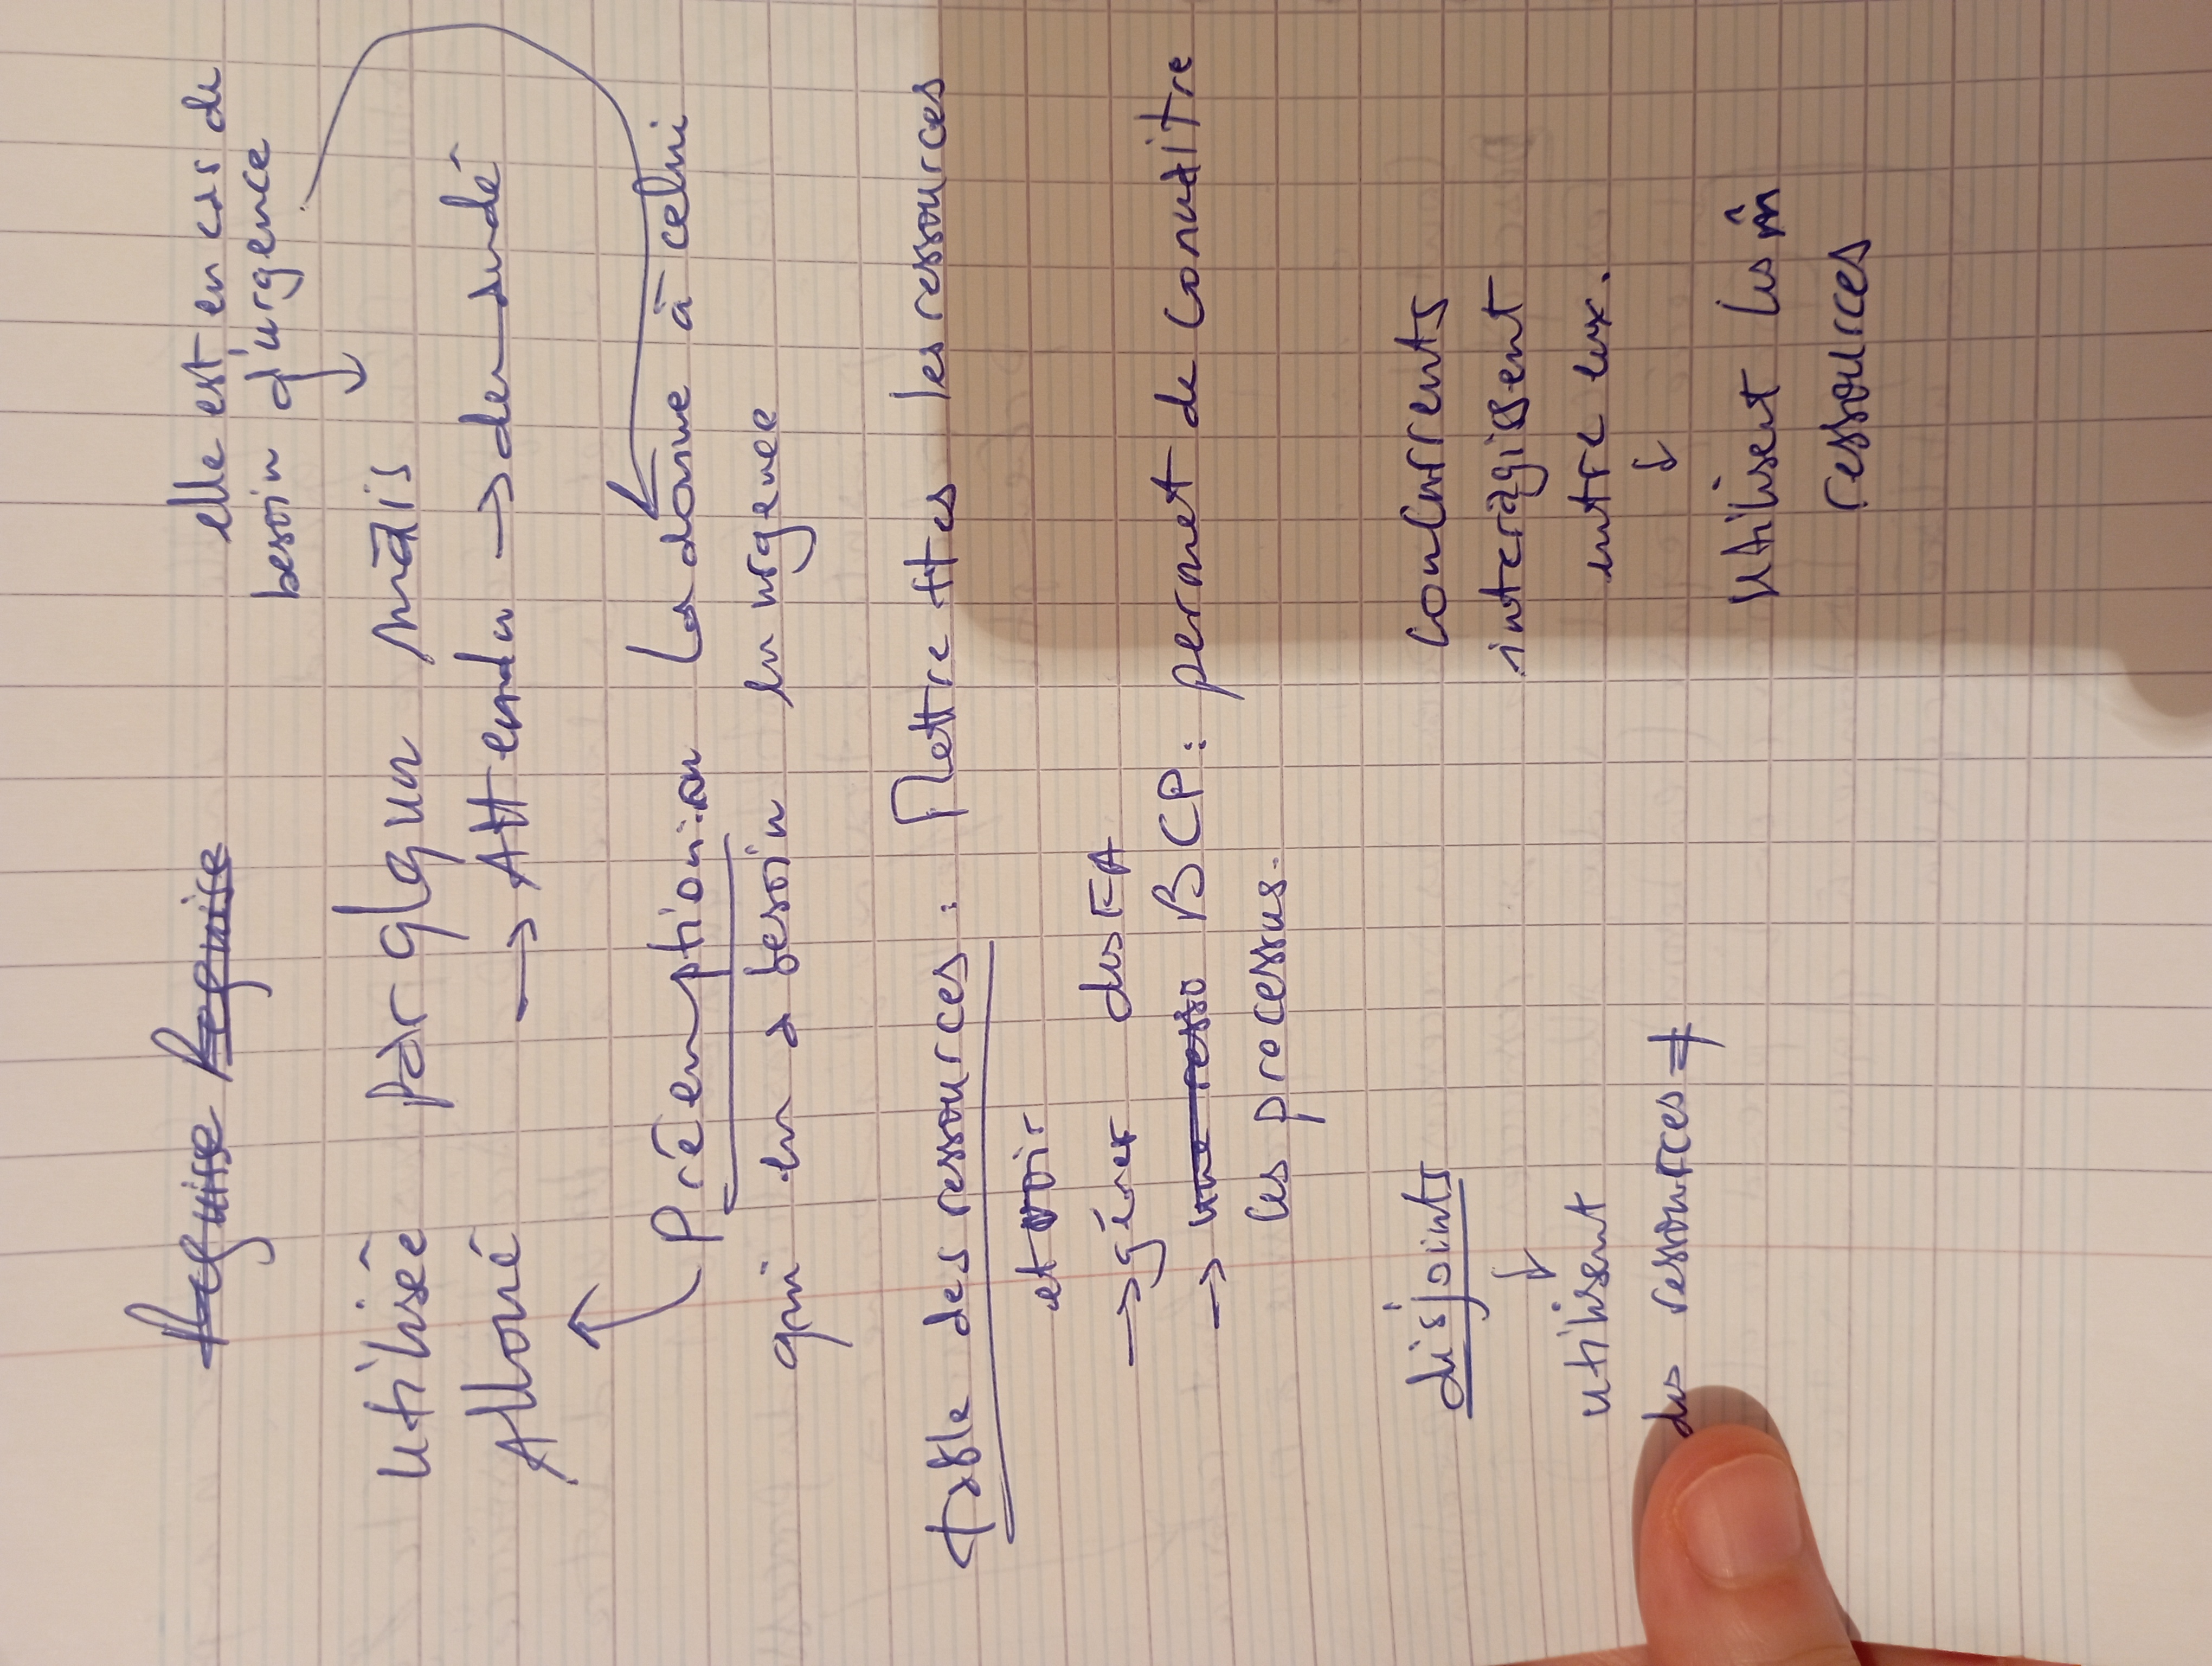 Requise Requise
elle est, en cas de
besoin d'urgence
utilisée par qlqun mais
Alloué → Attendu → demandé
Préemption : on la donne à celui
qui en a besoin en urgence
table des ressources : Mettre ttes les ressources
et voir
→ gérer des FA
→ une resso BCP : permet de connaitre
les processus.
disjoints
↓
utilisent
des ressources ≠
concurrents
interagissent
entre eux.
↓
utilisent les m̂
ressources